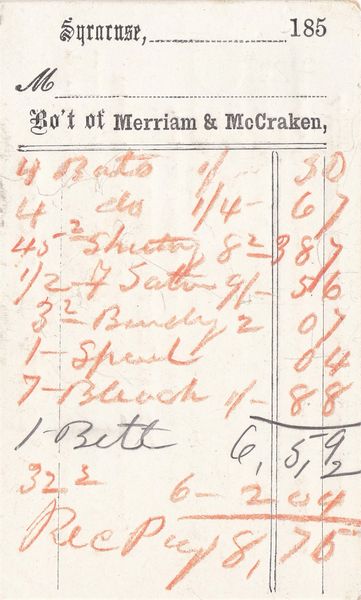 Syracuse, 185
M
Bo't of Merriam & McCraken,
4 Batts 1/ 50
4 do 1/4- 67
45-2 Sheeting 8 2 387
1/2 7 Satin 9/- 56
3 2 Bindg 2 07
1- Spool 04
7- Bleach 1/- 88
1 Belt 6,59
32 2 6- 2 04
Rec Pay 8,75